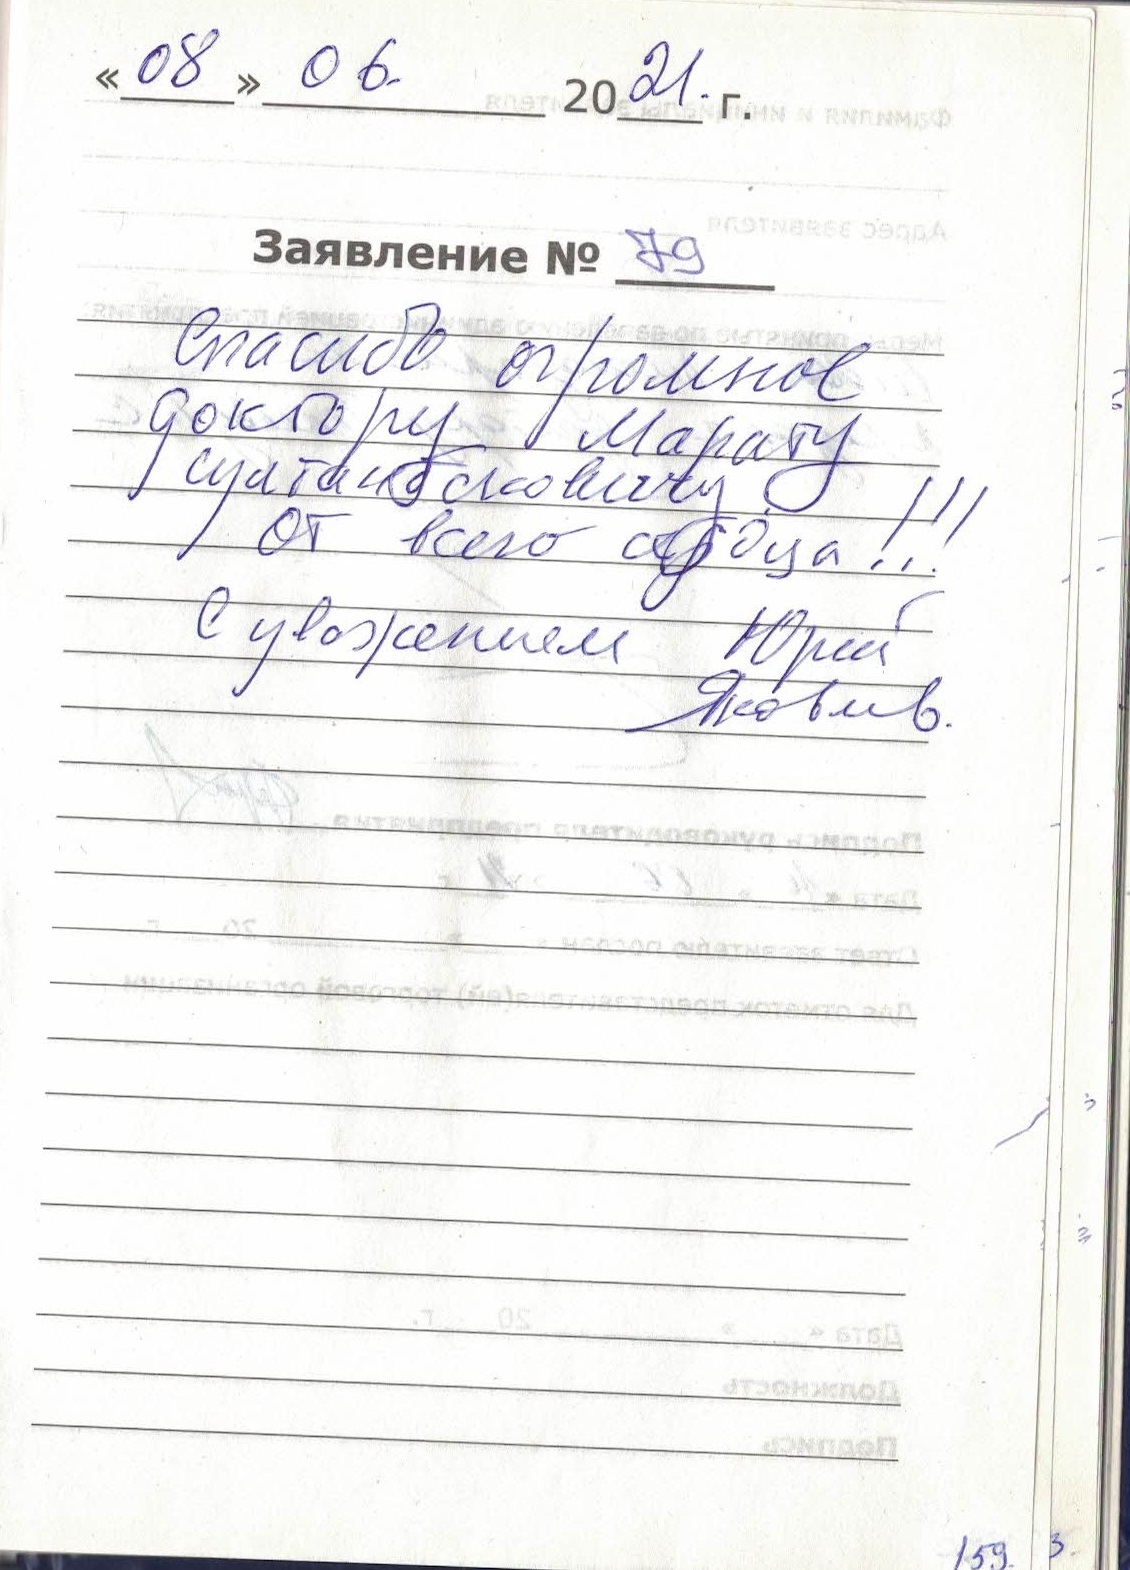 «08» 06. 2021. г.
Заявление № 79
Спасибо огромное
доктору Марату
султанбековичу
от всего сердца!!!
С уважением Юрий
Яковлев.
159. 3.